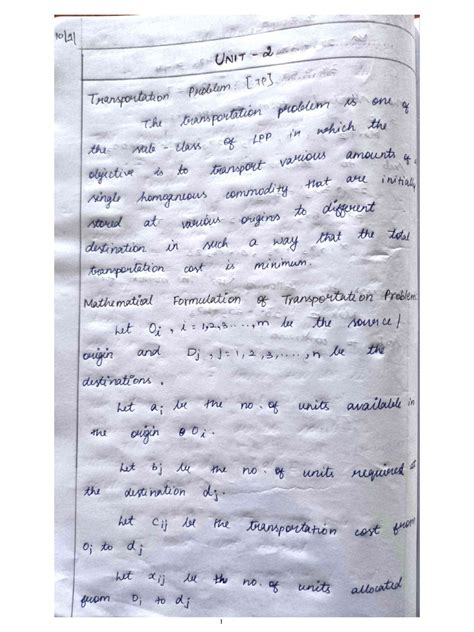 UNIT - 2
Transportation Problem: [TP]
The transportation problem is one of
the sub-class of LPP in which the
objective is to transport various amounts of
single homogeneous commodity that are initially
stored at various origins to different
destination in such a way that the total
transportation cost is minimum.
Mathematical Formulation of Transportation Problem
Let Oi, i=1,2,3...,m be the source/
origin and Dj, j=1,2,3,....,n be the
destinations.
Let ai be the no. of units available in
the origin Oi.
Let bj be the no. of units required
the destination dj.
Let Cij be the transportation cost from
Oi to dj
Let xij be the no. of units allocated
from Oi to dj
1